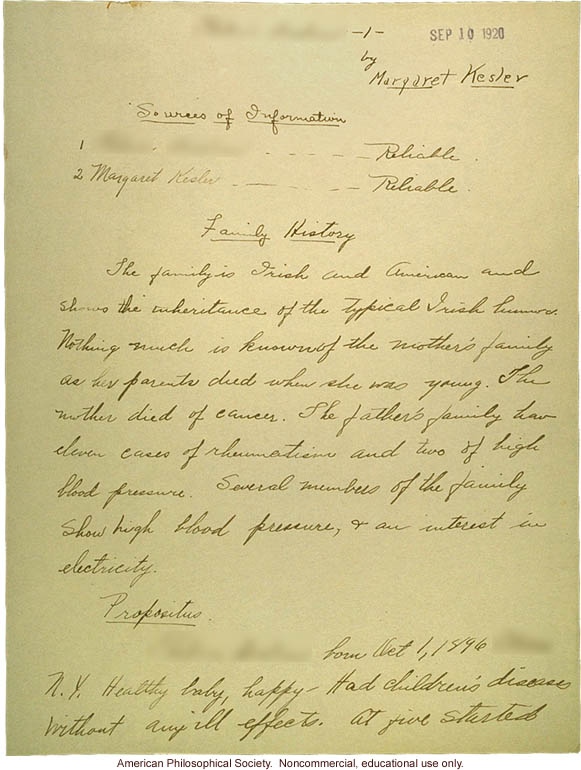 -1-
SEP 10 1920
by
Margaret Kesler
Sources of Information
1 - - - - Reliable.
2 Margaret Kesler - - - - Reliable.
Family History
The family is Irish and American and
shows the inheritance of the typical Irish humor.
Nothing much is known of the mother's family
as her parents died when she was young. The
mother died of cancer. The father's family have
eleven cases of rheumatism and two of high
blood pressure. Several members of the family
show high blood pressure, & an interest in
electricity.
Propositus.
born Oct 1, 1896
N.Y. Healthy baby, happy - Had children's diseases
without any ill effects. At five started
American Philosophical Society. Noncommercial, educational use only.